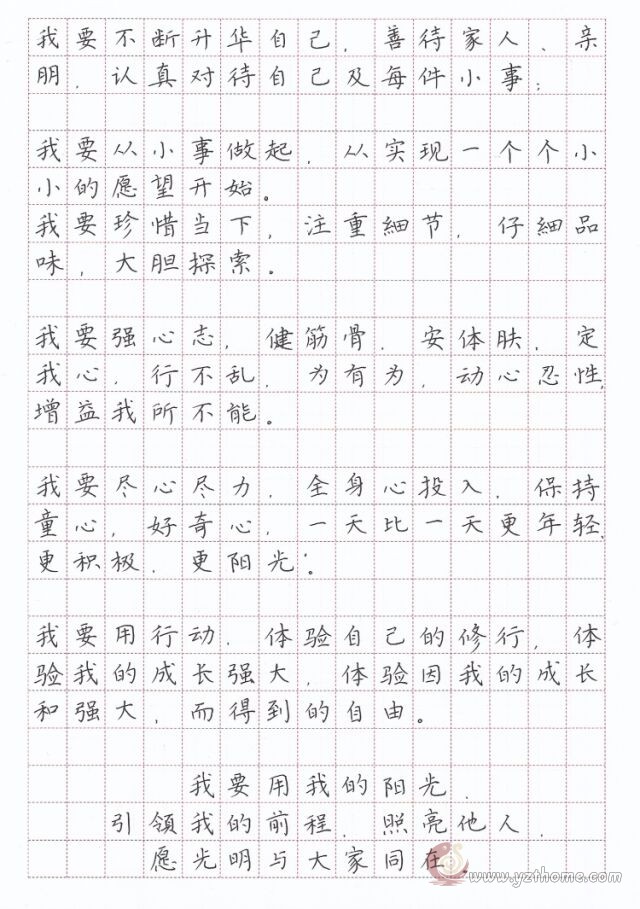 我要不断升华自己，善待家人、亲
朋，认真对待自己及每件小事；
我要从小事做起，从实现一个个小
小的愿望开始。
我要珍惜当下，注重細节，仔細品
味，大胆探索。
我要强心志，健筋骨，安体肤，定
我心，行不乱，为有为，动心忍性，
增益我所不能。
我要尽心尽力，全身心投入，保持
童心，好奇心，一天比一天更年轻，
更积极，更阳光；
我要用行动，体验自己的修行，体
验我的成长强大，体验因我的成长
和强大，而得到的自由。
我要用我的阳光，
引领我的前程，照亮他人，
愿光明与大家同在。
www.yzthome.com